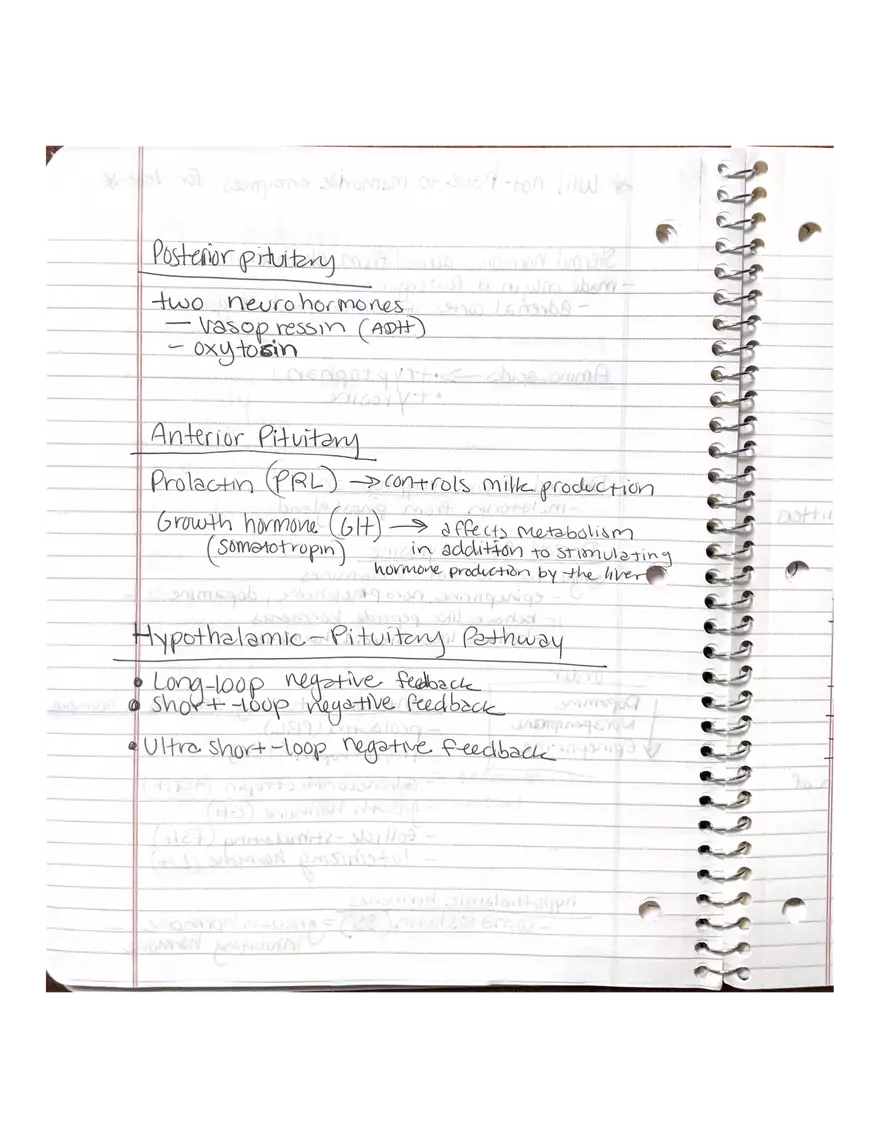 Posterior pituitary
two neurohormones
— Vasopressin (ADH)
- oxytosin
Anterior Pituitary
Prolactin (PRL) → controls milk production
Growth hormone (GH) → affects metabolism
(somatotropin) in addition to stimulating
hormone production by the liver
Hypothalamic-Pituitary Pathway
• Long-loop negative feedback
• Short-loop negative feedback
• Ultra short-loop negative feedback